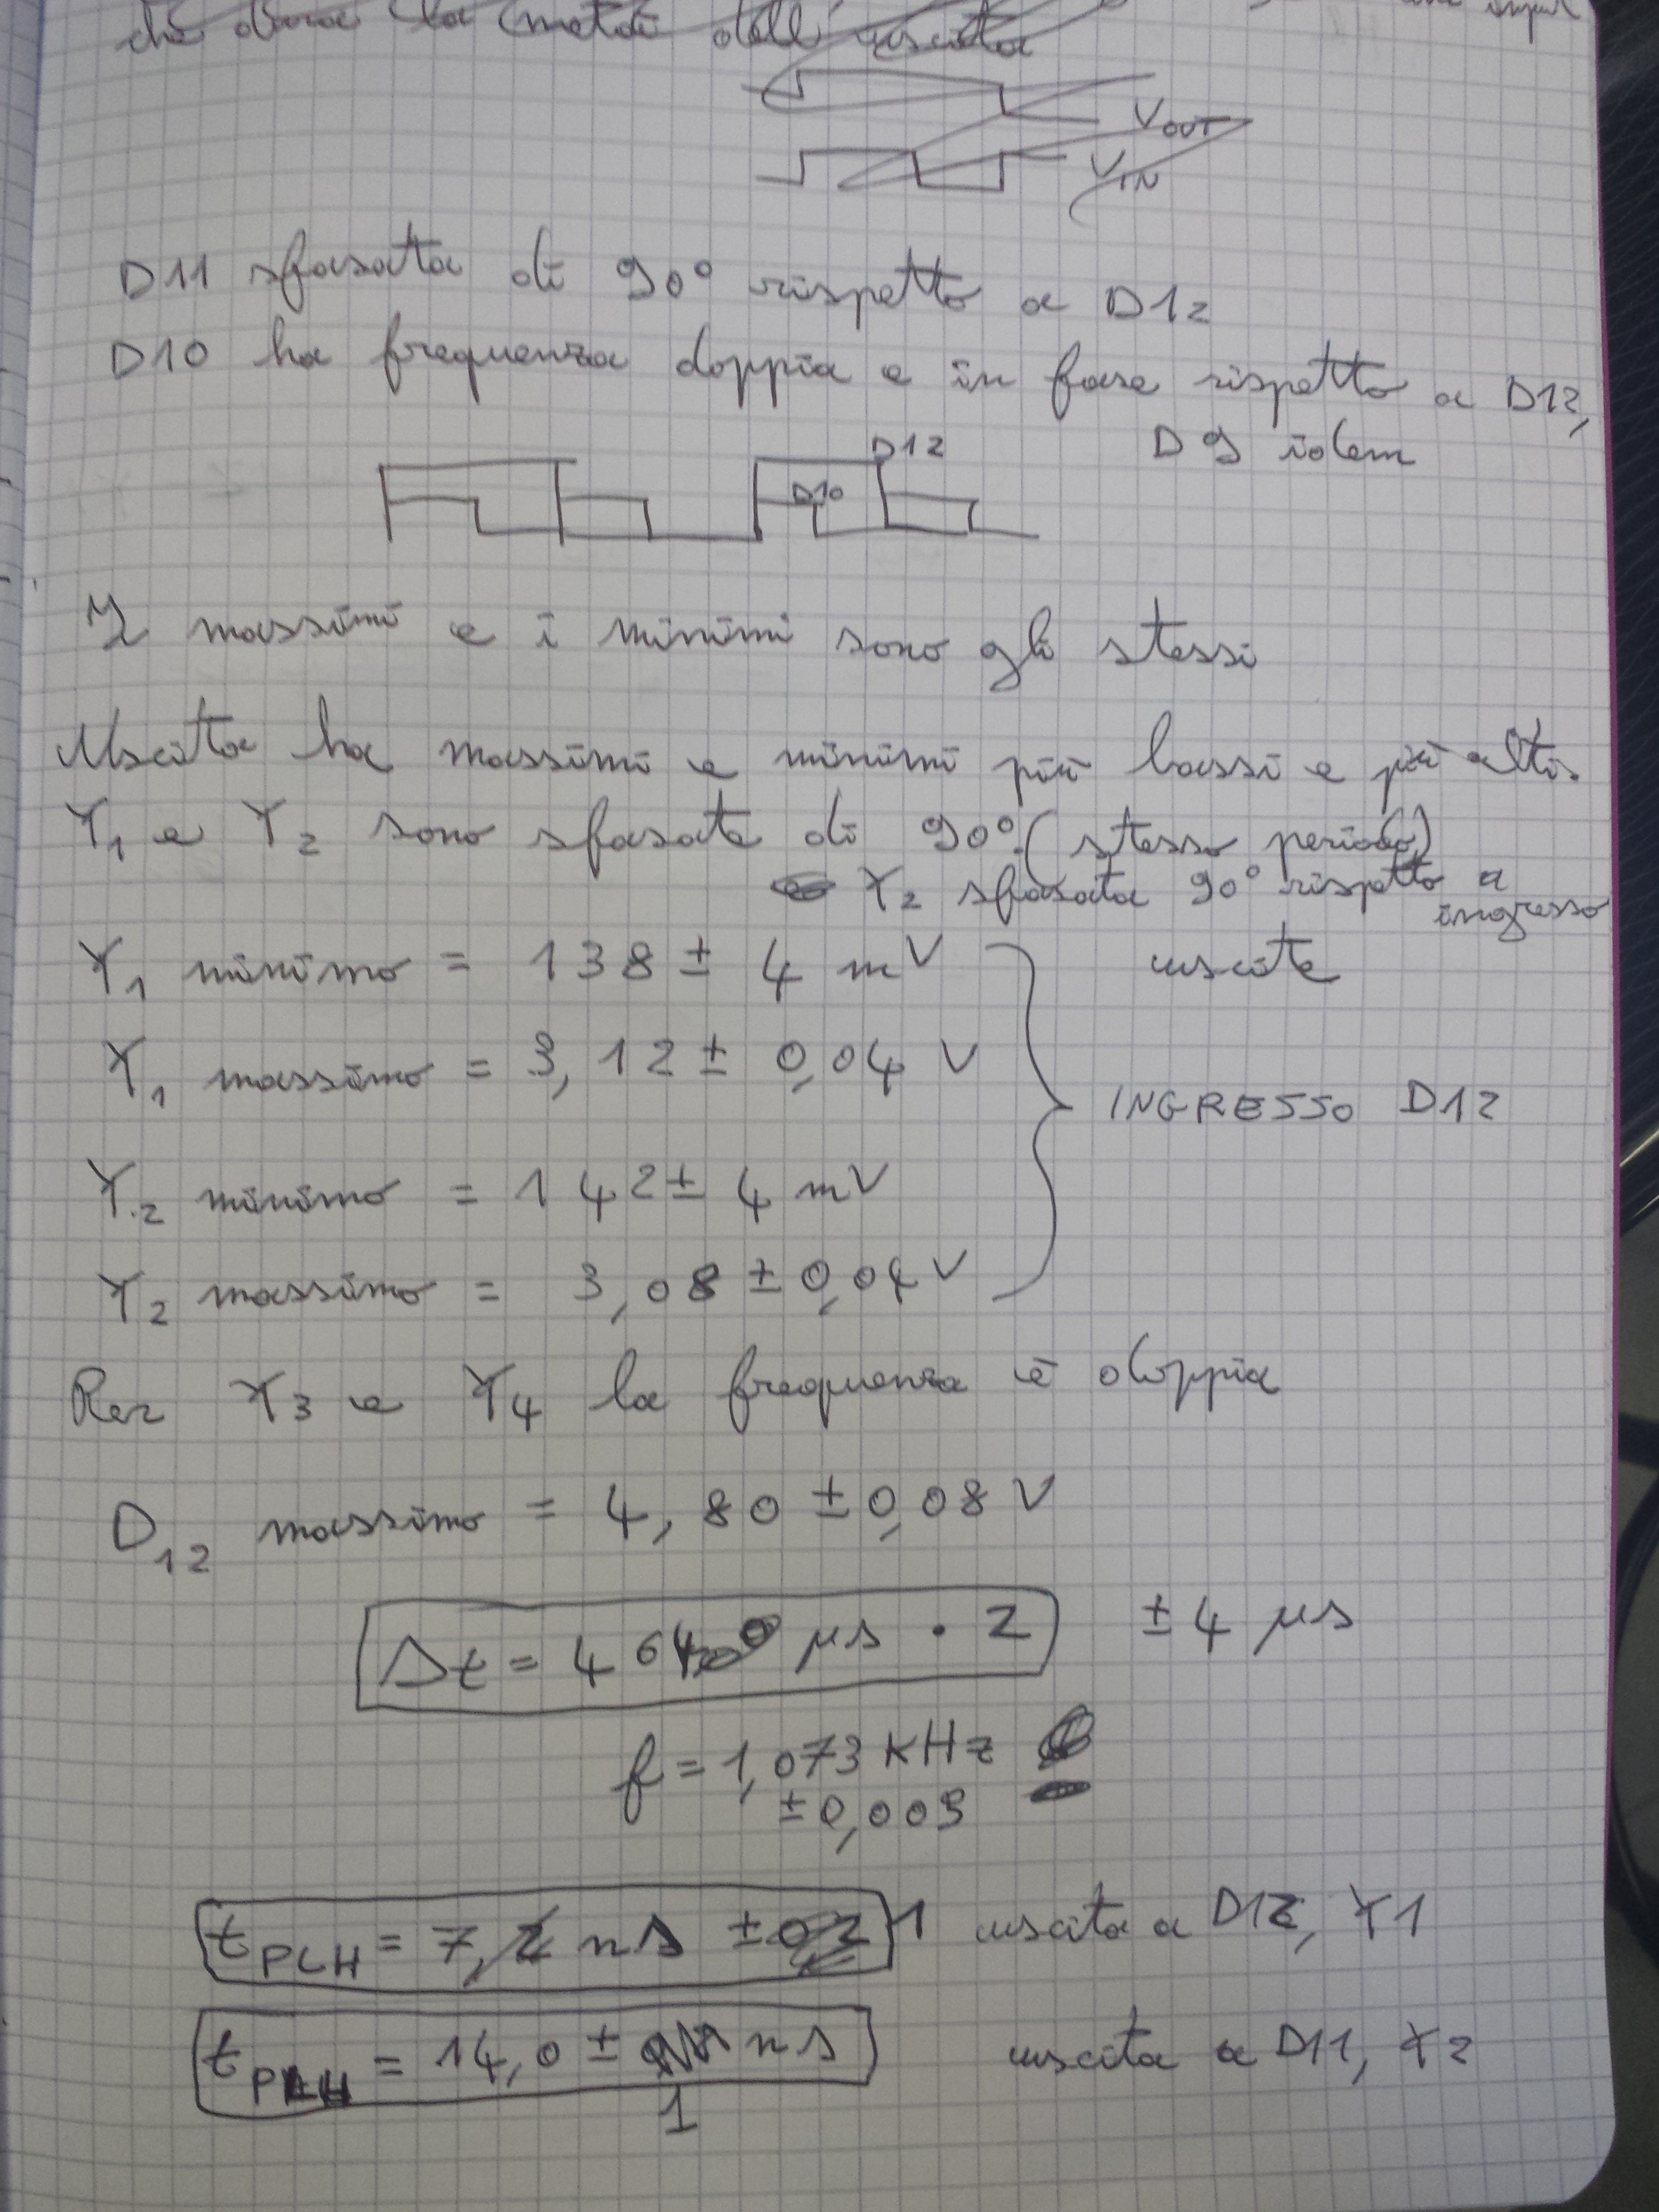 che dura la metà dell'uscita
input
VOUT
VIN
D11 sfasata di 90° rispetto a D12
D10 ha frequenza doppia e in fase rispetto a D12,
D9 idem
D12
D10
I massimi e i minimi sono gli stessi
Uscita ha massimi e minimi più bassi e più alti.
Y1 e Y2 sono sfasate di 90° (stesso periodo)
Y2 sfasata 90° rispetto a
ingresso
Y1 minimo = 138 ± 4 mV
uscite
Y1 massimo = 3,12 ± 0,04 V
INGRESSO D12
Y2 minimo = 142 ± 4 mV
Y2 massimo = 3,08 ± 0,04 V
Per Y3 e Y4 la frequenza è doppia
D12 massimo = 4,80 ± 0,08 V
Δt = 464 μs · 2 ± 4 μs
f = 1,073 KHz
± 0,009
tPLH = 7, ns ± 1 uscita a D12, Y1
tPLH = 14,0 ± ns uscita a D11, Y2
1